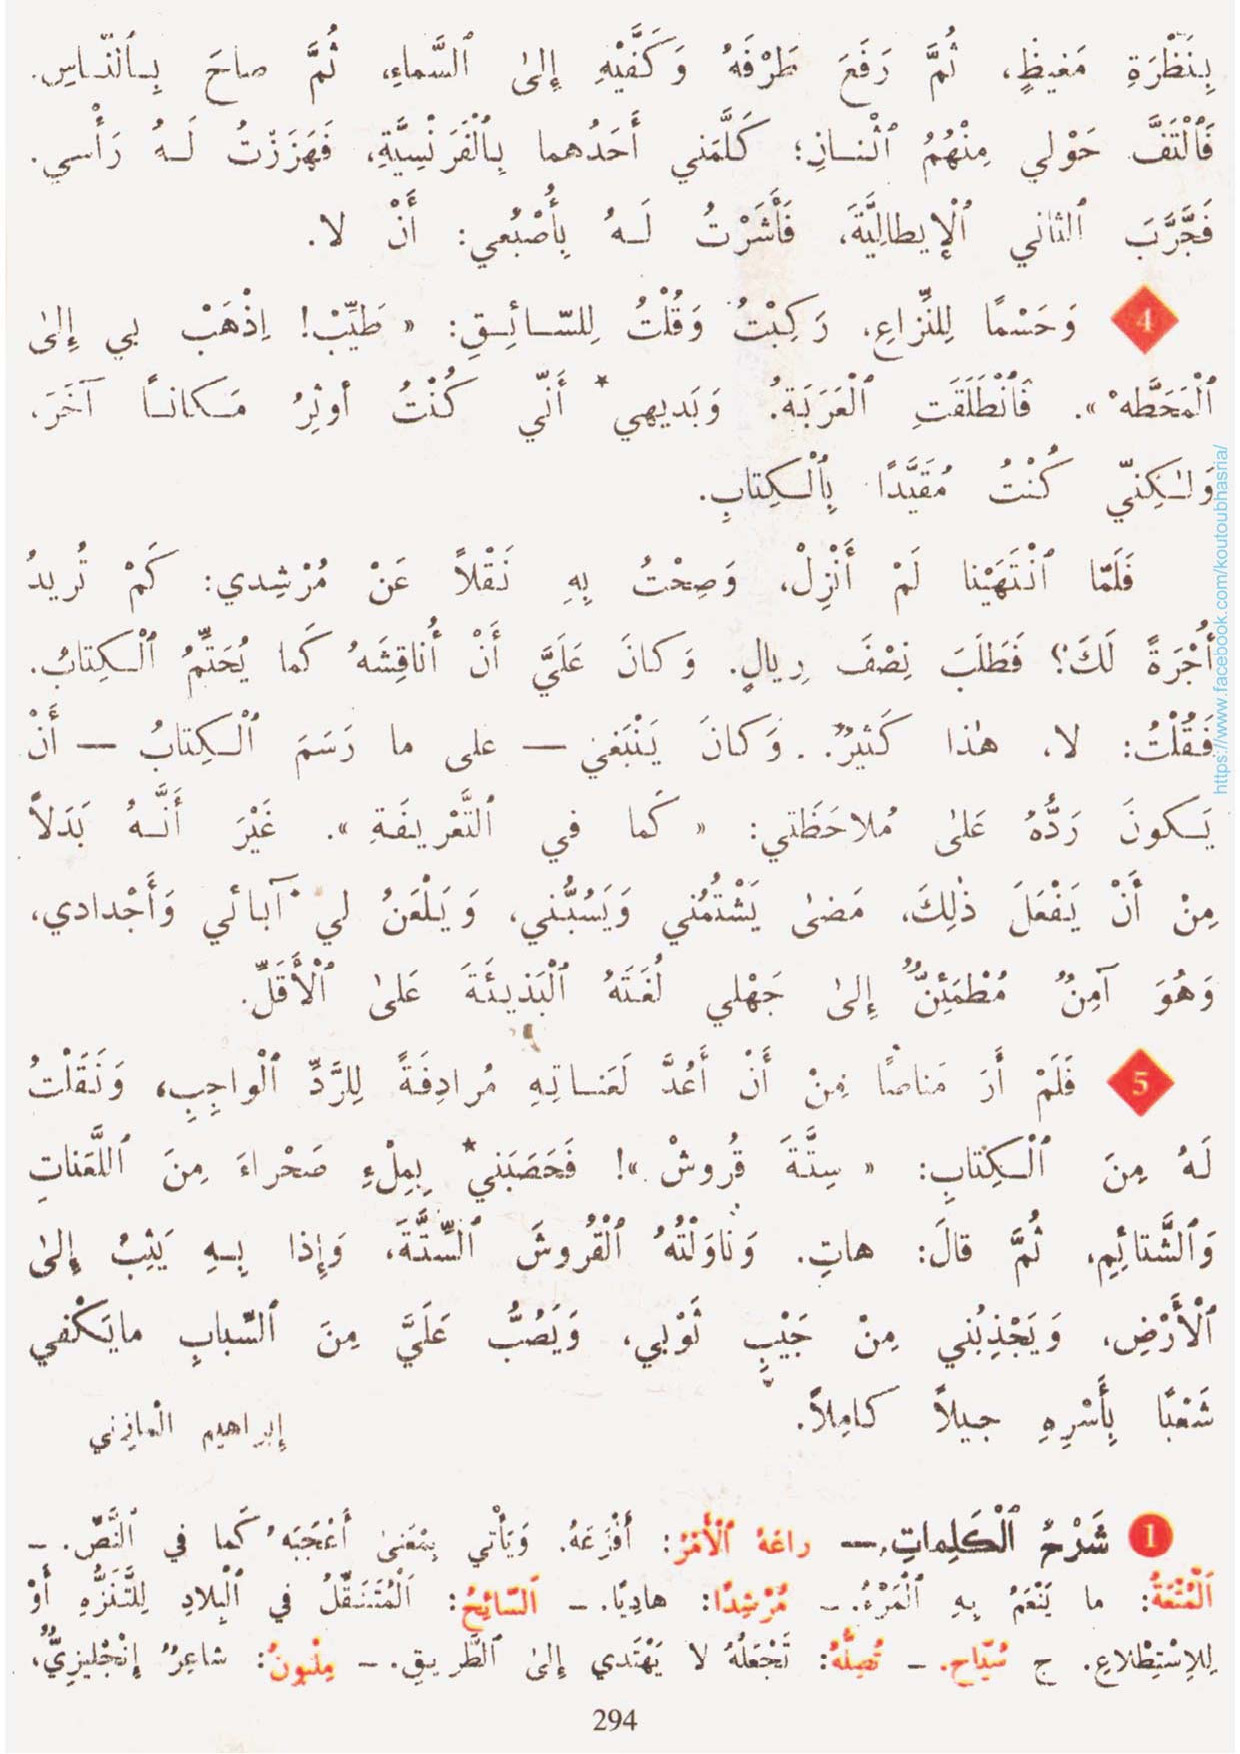 بِنَظْرَةِ مَغيظٍ، ثُمَّ رَفَعَ طَرْفَهُ وَكَفَّيْهِ إِلىٰ ٱلسَّماءِ، ثُمَّ صاحَ بِـٱلنّـاسِ.
فَٱلْتَفَّ حَوْلي مِنْهُمُ ٱثْنـانِ؛ كَلَّمَني أَحَدُهما بِٱلْفَرَنْسِيَّةِ، فَهَزَزْتُ لَـهُ رَأْسي.
فَجَرَّبَ ٱلثاني ٱلْإيطالِيَّةَ، فَأَشَرْتُ لَـهُ بِأُصْبُعي: أَنْ لا.
4 وَحَسْمًا لِلنِّزاعِ، رَكِبْتُ وَقُلْتُ لِلسّـائِـقِ: « طَيِّبْ! اِذْهَبْ بي إِلىٰ
ٱلْمَحَطَّهْ ». فَٱنْطَلَقَتِ ٱلْعَرَبَةُ. وَبَديهي* أَنّي كُنْتُ أوثِرُ مَـكانـاً آخَرَ،
وَلـٰكِنّي كُنْتُ مُقَيَّدًا بِٱلْـكِتابِ.
فَلَمّا ٱنْتَهَيْنا لَمْ أَنْزِلْ، وَصِحْتُ بِهِ نَقْلاً عَنْ مُرْشِدي: كَمْ تُريدُ
أُجْرَةً لَكَ؟ فَطَلَبَ نِصْفَ رِيالٍ. وَكانَ عَلَيَّ أَنْ أُناقِشَهُ كَما يُحَتِّمُ ٱلْـكِتابُ.
فَقُلْتُ: لا، هٰذا كَثيرٌ. وَكانَ يَنْبَغي — على ما رَسَمَ ٱلْـكِتابُ — أَنْ
يَـكونَ رَدُّهُ عَلىٰ مُلاحَظَتي: « كَما في ٱلتَّعْريفَةِ ». غَيْرَ أَنَّـهُ بَدَلاً
مِنْ أَنْ يَفْعَلَ ذٰلِكَ، مَضىٰ يَشْتُمُني وَيَسُبُّني، وَيَلْعَنُ لي آبائي وَأَجْدادي،
وَهُوَ آمِنٌ مُطْمَئِنٌّ إِلىٰ جَهْلي لُغَتَهُ ٱلْبَذيئَةَ عَلىٰ ٱلْأَقَلِّ.
5 فَلَمْ أَرَ مَناصًا مِنْ أَنْ أَعُدَّ لَعَنـاتِهِ مُرادِفَةً لِلرَّدِّ ٱلْواجِبِ، وَنَقَلْتُ
لَهُ مِنَ ٱلْـكِتابِ: « سِتَّةَ قُروشْ »! فَحَصَبَني* بِمِلْءِ صَحْراءَ مِنَ ٱللَّعَناتِ
وَٱلشَّتائِمِ، ثُمَّ قالَ: هاتِ. وَنَاوَلْتُهُ ٱلْقُروشَ ٱلسِّتَّةَ، وَإِذا بِـهِ يَثِبُ إِلىٰ
ٱلْأَرْضِ، وَيَجْذِبُني مِنْ جَيْبِ ثَوْبي، وَيَصُبُّ عَلَيَّ مِنَ ٱلسِّبابِ مايَكْفي
شَعْبًا بِأَسْرِهِ جيلاً كامِلاً.
إبراهيم المازني
1 شَرْحُ ٱلْكَلِماتِ. — راعَهُ ٱلْأَمْرُ: أَفْزَعَهُ. وَيَأْتي بِمَعْنىٰ أَعْجَبَهُ كَما في ٱلنَّصِّ. —
ٱلْمُتْعَةُ: ما يَنْعَمُ بِهِ ٱلْمَرْءُ. — مُرْشِدًا: هادِيًا. — ٱلسّائِحُ: ٱلْمُتَنَقِّلُ في ٱلْبِلادِ لِلتَّنَزُّهِ أَوْ
لِلاِسْتِطْلاعِ. ج سُيّاح. — تُضِلُّهُ: تَجْعَلُهُ لا يَهْتَدي إِلىٰ ٱلطَّريقِ. — مِلْتونُ: شاعِرٌ إِنْجْليزِيٌّ،
294
https://www.facebook.com/koutoubhasria/